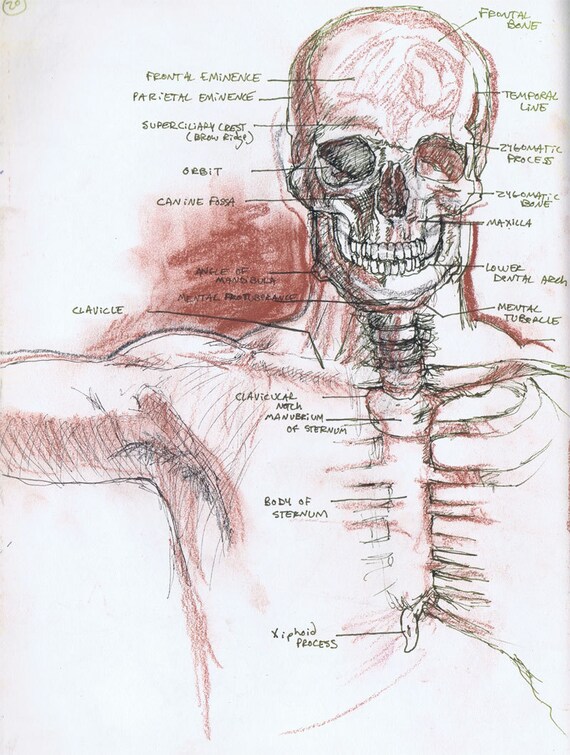 20
FRONTAL
BONE
FRONTAL EMINENCE
PARIETAL EMINENCE
TEMPORAL
LINE
SUPERCILIARY CREST
(BROW RIDGE)
ZYGOMATIC
PROCESS
ORBIT
CANINE FOSSA
ZYGOMATIC
BONE
MAXILLA
ANGLE OF
MANDIBULA
LOWER
DENTAL ARCH
MENTAL PROTUBERANCE
CLAVICLE
MENTAL
TUBERCLE
CLAVICULAR
NOTCH
MANUBRIUM
OF STERNUM
BODY OF
STERNUM
Xiphoid
PROCESS